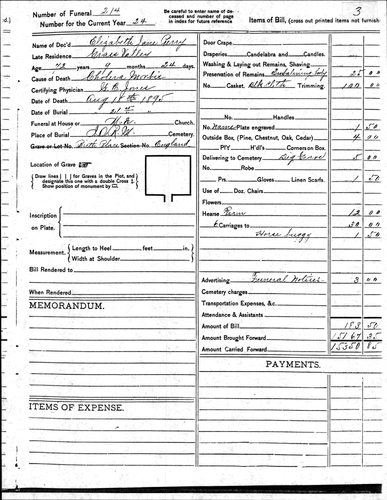 3
Number of Funeral 214
Number for the Current Year 24
Be careful to enter name of deceased and number of page in index for future reference
Items of Bill, (cross out printed items not furnish
Name of Dec'd Elizabeth Jane Perry
Late Residence Grass Valley
Age 72 years 9 months 24 days
Cause of Death Cholera Morbus
Certifying Physician Jones
Date of Death Aug 18th 1895
Date of Burial
Funeral at House or Church.
Place of Burial Cemetery.
Grave or Lot No. Birth Place Section No. England
Location of Grave
Draw lines | | for Graves in the Plot, and designate this one with a double Cross
Show position of monument by
Inscription
on Plate.
Measurement: Length to Heel feet in.
Width at Shoulder
Bill Rendered to
When Rendered
MEMORANDUM.
ITEMS OF EXPENSE.
Door Crape
Draperies Candelabra and Candles.
Washing & Laying out Remains, Shaving
Preservation of Remains Embalming Body 25 00
No. Casket, Blk Cloth Trimming, 100 00
Handles
No. Name Plate engraved 1 50
Outside Box, (Pine, Chestnut, Oak, Cedar) 4 00
P'l'y H'dl's Corners on Box
Delivering to Cemetery Dig Grave 5 00
No. Robe
Prs. Gloves Linen Scarfs. 1 50
Use of Doz. Chairs
Flowers
Hearse 12 00
6 Carriages to 30 00
Horse buggy 1 50
Advertising Funeral Notices 3 00
Cemetery charges
Transportation Expenses, &c.
Attendance & Assistants
Amount of Bill 183 50
Amount Brought Forward 15167 35
Amount Carried Forward 15350 85
PAYMENTS.